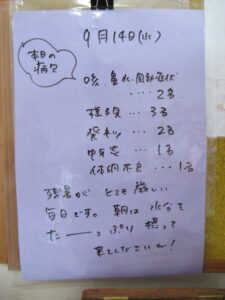 9月14日(水)
本日の
病欠
咳、鼻水、風邪症状
‥‥2名
様子見…3名
発熱…2名
中耳炎…1名
体調不良…1名
残暑が とても厳しい
毎日です。朝は 水分を
たーーっぷり 摂って
来てくださいね!